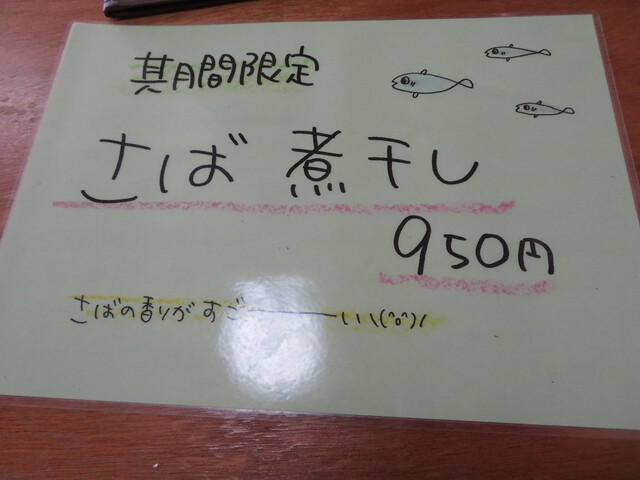 期間限定
さば 煮干し
950円
さばの香りがすご――――いい\(^o^)/